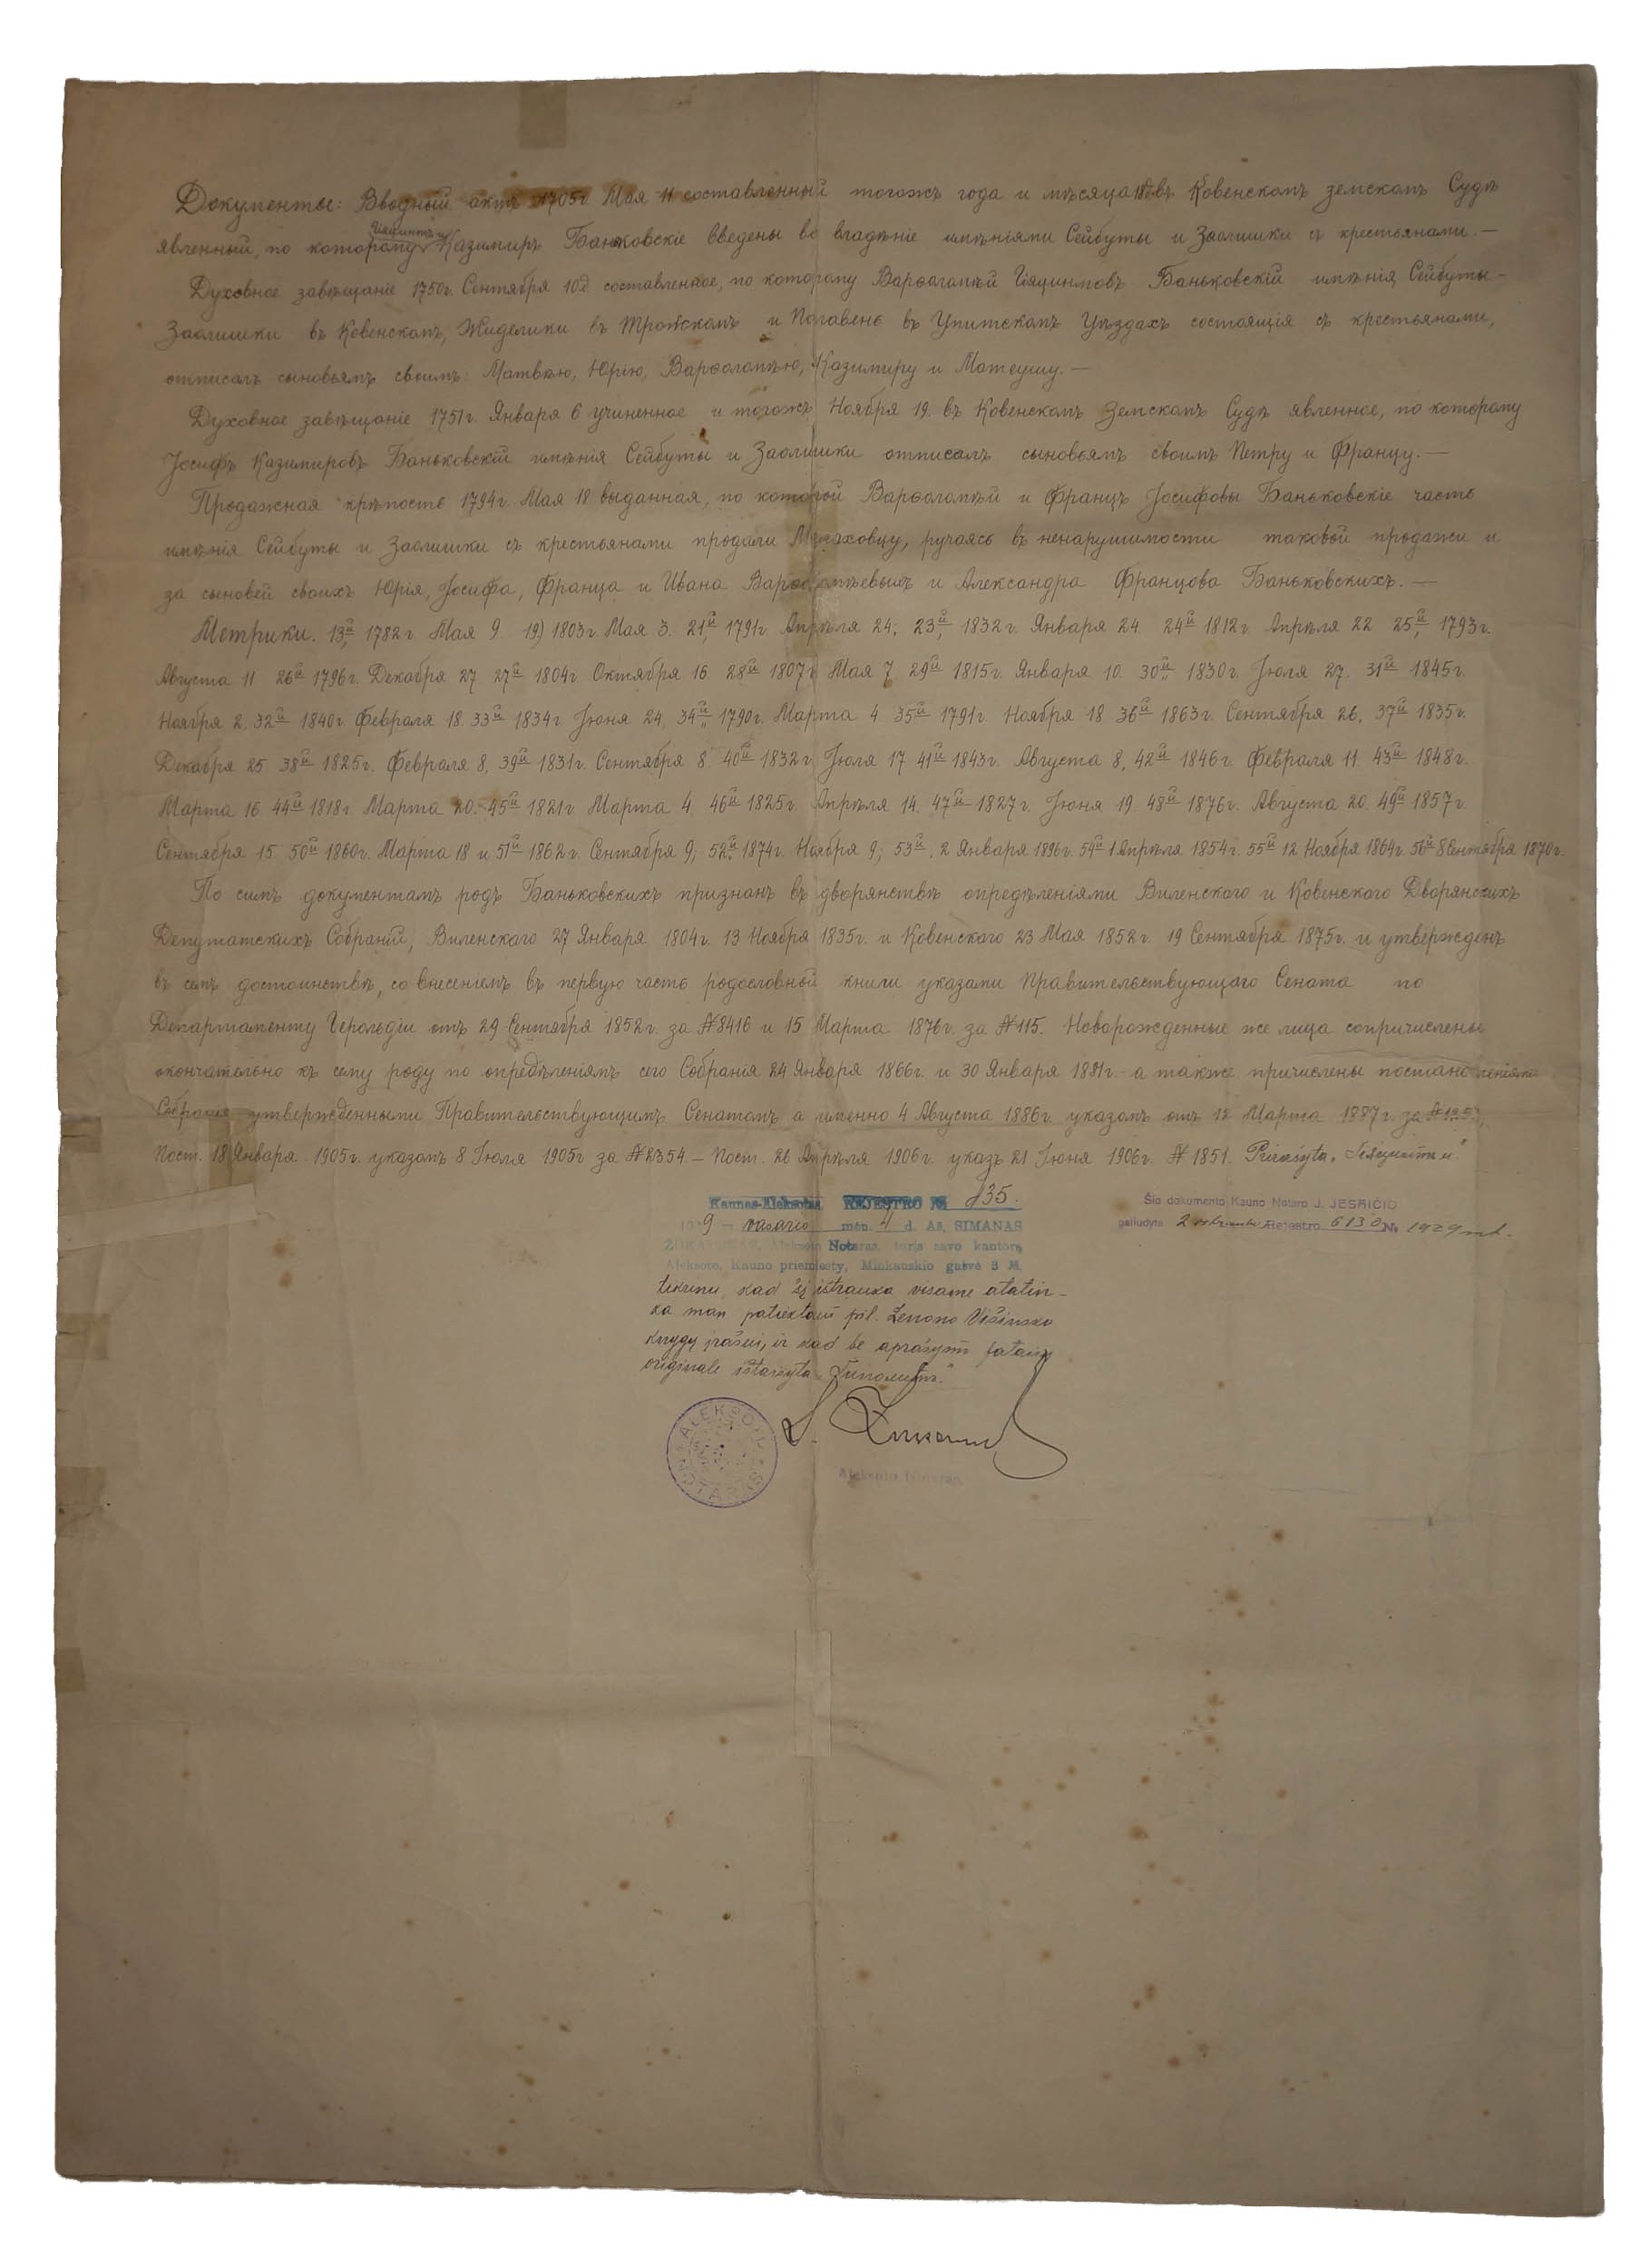 Документы: Вводный актъ 1705г. Мая 11 составленный тогожъ года и мѣсяца въ Ковенскомъ земскомъ Судѣ
Гіяцинтъ и
явленный, по которому Казимиръ Баньковскіе введены во владѣніе имѣніями Сейбуты и Заолишки съ крестьянами. —
Духовное завѣщаніе 1750г. Сентября 10д. составленное, по которому Варѳоломѣй Гіяцинтовъ Баньковскій имѣнія Сейбуты-
Заолишки въ Ковенскомъ, Жиделики въ Тройскомъ и Полавень въ Упитскомъ Уѣздахъ состоящія съ крестьянами,
отписалъ сыновьямъ своимъ: Матвѣю, Юрію, Варѳоломѣю, Казимиру и Матеушу. —
Духовное завѣщаніе 1751г. Января 6 учиненное и тогожъ Ноября 19. въ Ковенскомъ Земскомъ Судѣ явленное, по которому
Іосифъ Казимировъ Баньковскій имѣнія Сейбуты и Заолишки отписалъ сыновьямъ своимъ Петру и Францу. —
Продажная крѣпость 1794г. Мая 18 выданная, по которой Варѳоломѣй и Францъ Іосифовы Баньковскіе часть
имѣнія Сейбуты и Заолишки съ крестьянами продали ручаясь въ ненарушимости таковой продажи и
за сыновей своихъ Юрія, Іосифа, Франца и Ивана Варѳоломѣевыхъ и Александра Францова Баньковскихъ. —
Метрики. 13й 1782г. Мая 9. 19) 1803г. Мая 3. 21й 1791г. Апрѣля 24, 23й 1832г. Января 24. 24й 1812г. Апрѣля 22 25й 1793г.
Августа 11 26й 1796г. Декабря 27. 27й 1804г. Октября 16. 28й 1807г. Мая 7. 29й 1815г. Января 10. 30й 1830г. Іюля 27. 31й 1845г.
Ноября 2. 32й 1840г. Февраля 18. 33й 1834г. Іюня 24, 34й 1790г. Марта 4. 35й 1791г. Ноября 18 36й 1863г. Сентября 26, 37й 1835г.
Декабря 25 38й 1825г. Февраля 8, 39й 1831г. Сентября 8. 40й 1832г. Іюля 17 41й 1843г. Августа 8, 42й 1846г. Февраля 11. 43й 1848г.
Марта 16. 44й 1818г. Марта 20. 45й 1821г. Марта 4. 46й 1825г. Апрѣля 14. 47й 1827г. Іюня 19. 48й 1876г. Августа 20. 49й 1857г.
Сентября 15. 50й 1860г. Марта 18 и 51й 1862г. Сентября 9, 52й 1874г. Ноября 9, 53й, 2 Января 1896г. 54й 1 Апрѣля 1854г. 55й 12 Ноября 1864г. 56й 8 Сентября 1870г.
По симъ документамъ родъ Баньковскихъ признанъ въ дворянствѣ опредѣленіями Виленскаго и Ковенскаго Дворянскихъ
Депутатскихъ Собраній, Виленскаго 27 Января 1804г. 13 Ноября 1835г. и Ковенскаго 23 Мая 1852г. 19 Сентября 1875г. и утвержденъ
въ семъ достоинствѣ, со внесеніемъ въ первую часть родословной книги указами Правительствующаго Сената по
Департаменту Герольдіи отъ 29 Сентября 1852г. за № 8416 и 15 Марта 1876г. за № 115. Новорожденные же лица сопричислены
окончательно къ сему роду по опредѣленіямъ сего Собранія 24 Января 1866г. и 30 Января 1881г. а также причислены постановленіями
Собранія утвержденными Правительствующимъ Сенатомъ а именно 4 Августа 1886г. указомъ отъ 12 Марта 1887г. за
Пост. 18 Января 1905г. указомъ 8 Іюля 1905г. за № 2354. — Пост. 26 Апрѣля 1906г. указъ 21 Іюня 1906г. № 1851. Prirašyta „Гіяцинтъ и".
Kaunas-Aleksotas REJESTRO № 835.
9 m vasario mėn. 4 d. Aš, SIMANAS
Aleksoto Notaras, turįs savo kantorą
Aleksote, Kauno priemiesty, Mickauskio gatvė 3 №
tikrinu, kad ši ištrauka visame atatin-
ka man patiektam pil. Zenono Višinsko
knygų įrašui, ir kad be aprašymų pataisų
originale ištaisyta
Šio dokumento Kauno Notaro J. JESAIČIO
paliudyta 2 Rejestro 6130 № 1929 m.
ALEKSOTO NOTARAS
Aleksoto Notaras